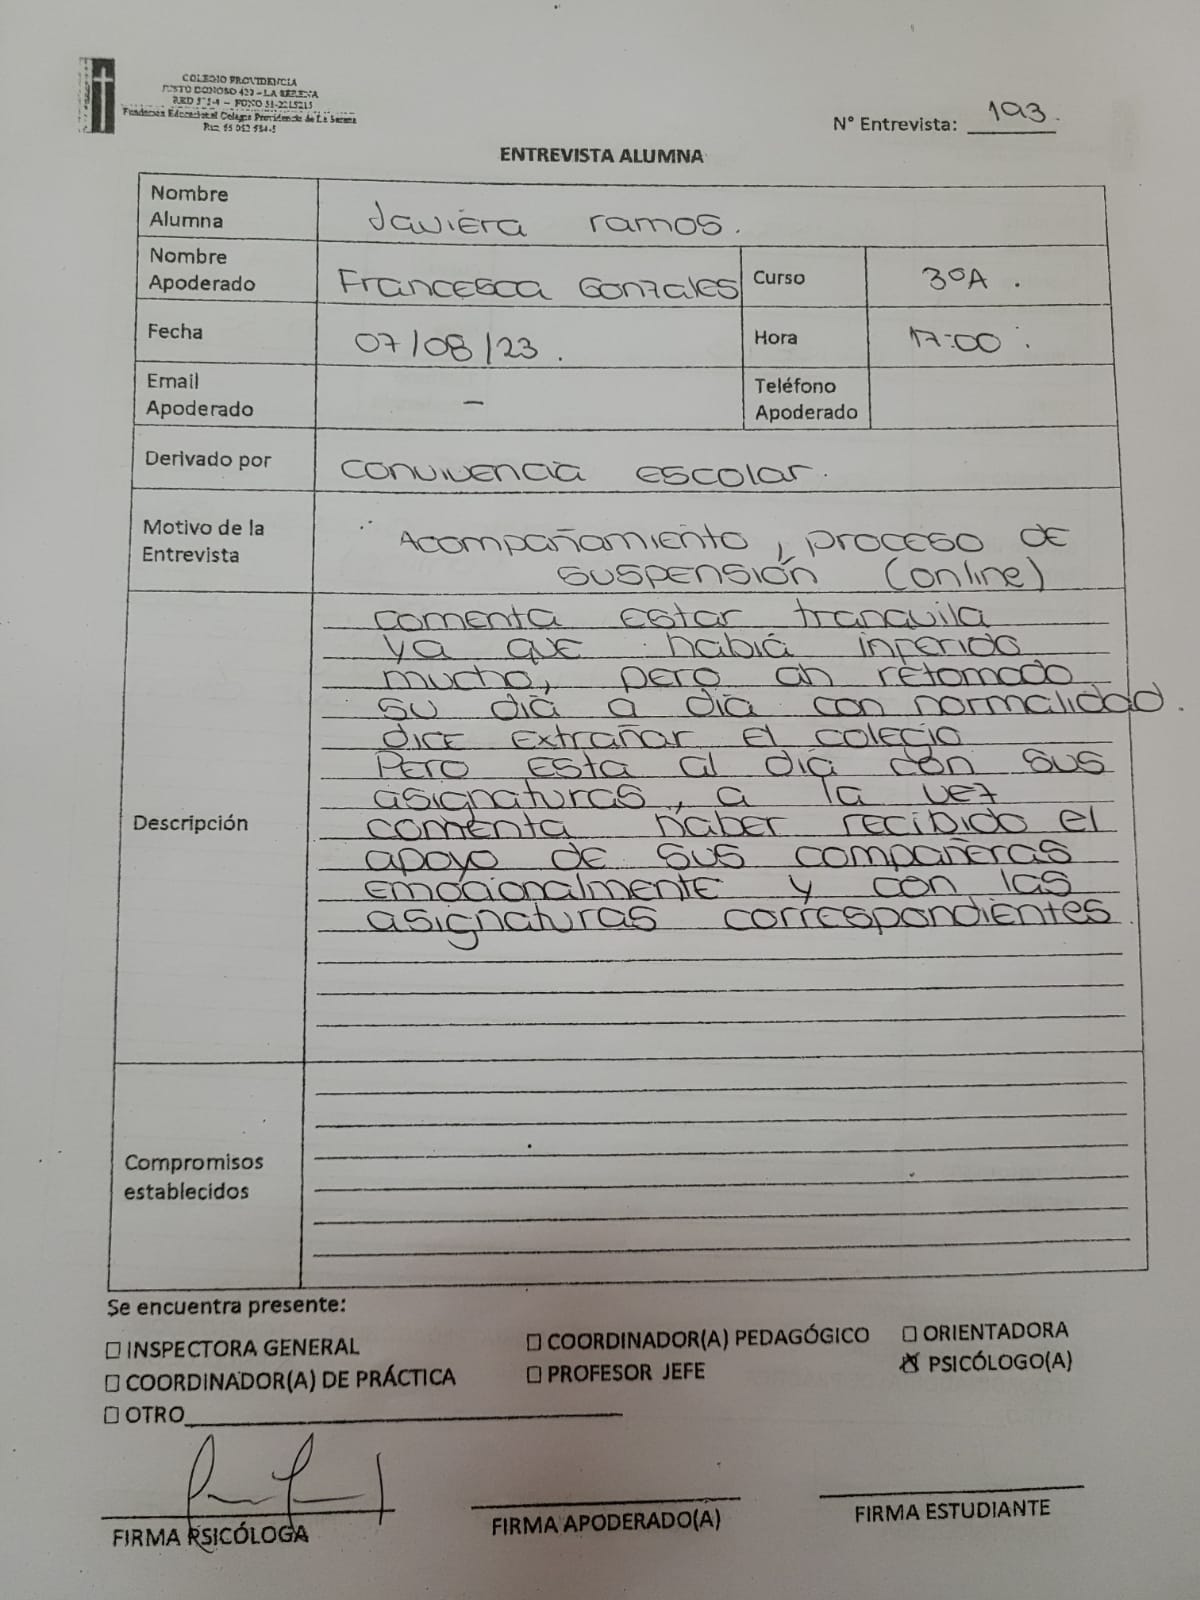 COLEGIO PROVIDENCIA
JUSTO DONOSO 420 – LA SERENA
RBD 575-4 – FONO 51-2215215
Fundación Educacional Colegio Providencia de La Serena
N° Entrevista: 193.
ENTREVISTA ALUMNA
Nombre
Alumna
Javiera ramos.
Nombre
Apoderado
Francesca Gonzales
Curso
3ºA.
Fecha
07/08/23.
Hora
17:00
Email
Apoderado
–
Teléfono
Apoderado
Derivado por
convivencia escolar.
Motivo de la
Entrevista
Acompañamiento, proceso de
suspensión (online)
Descripción
comenta estar tranquila
ya que habiá inferido
mucho, pero ah retomado
su día a día con normalidad.
dice extrañar el colegio
Pero esta al día con sus
asignaturas, a la vez
comenta haber recibido el
apoyo de sus compañeras
emocionalmente y con las
asignaturas correspondientes.
Compromisos
establecidos
Se encuentra presente:
☐ INSPECTORA GENERAL ☐ COORDINADOR(A) PEDAGÓGICO ☐ ORIENTADORA
☐ COORDINADOR(A) DE PRÁCTICA ☐ PROFESOR JEFE ☒ PSICÓLOGO(A)
☐ OTRO
FIRMA PSICÓLOGA FIRMA APODERADO(A) FIRMA ESTUDIANTE